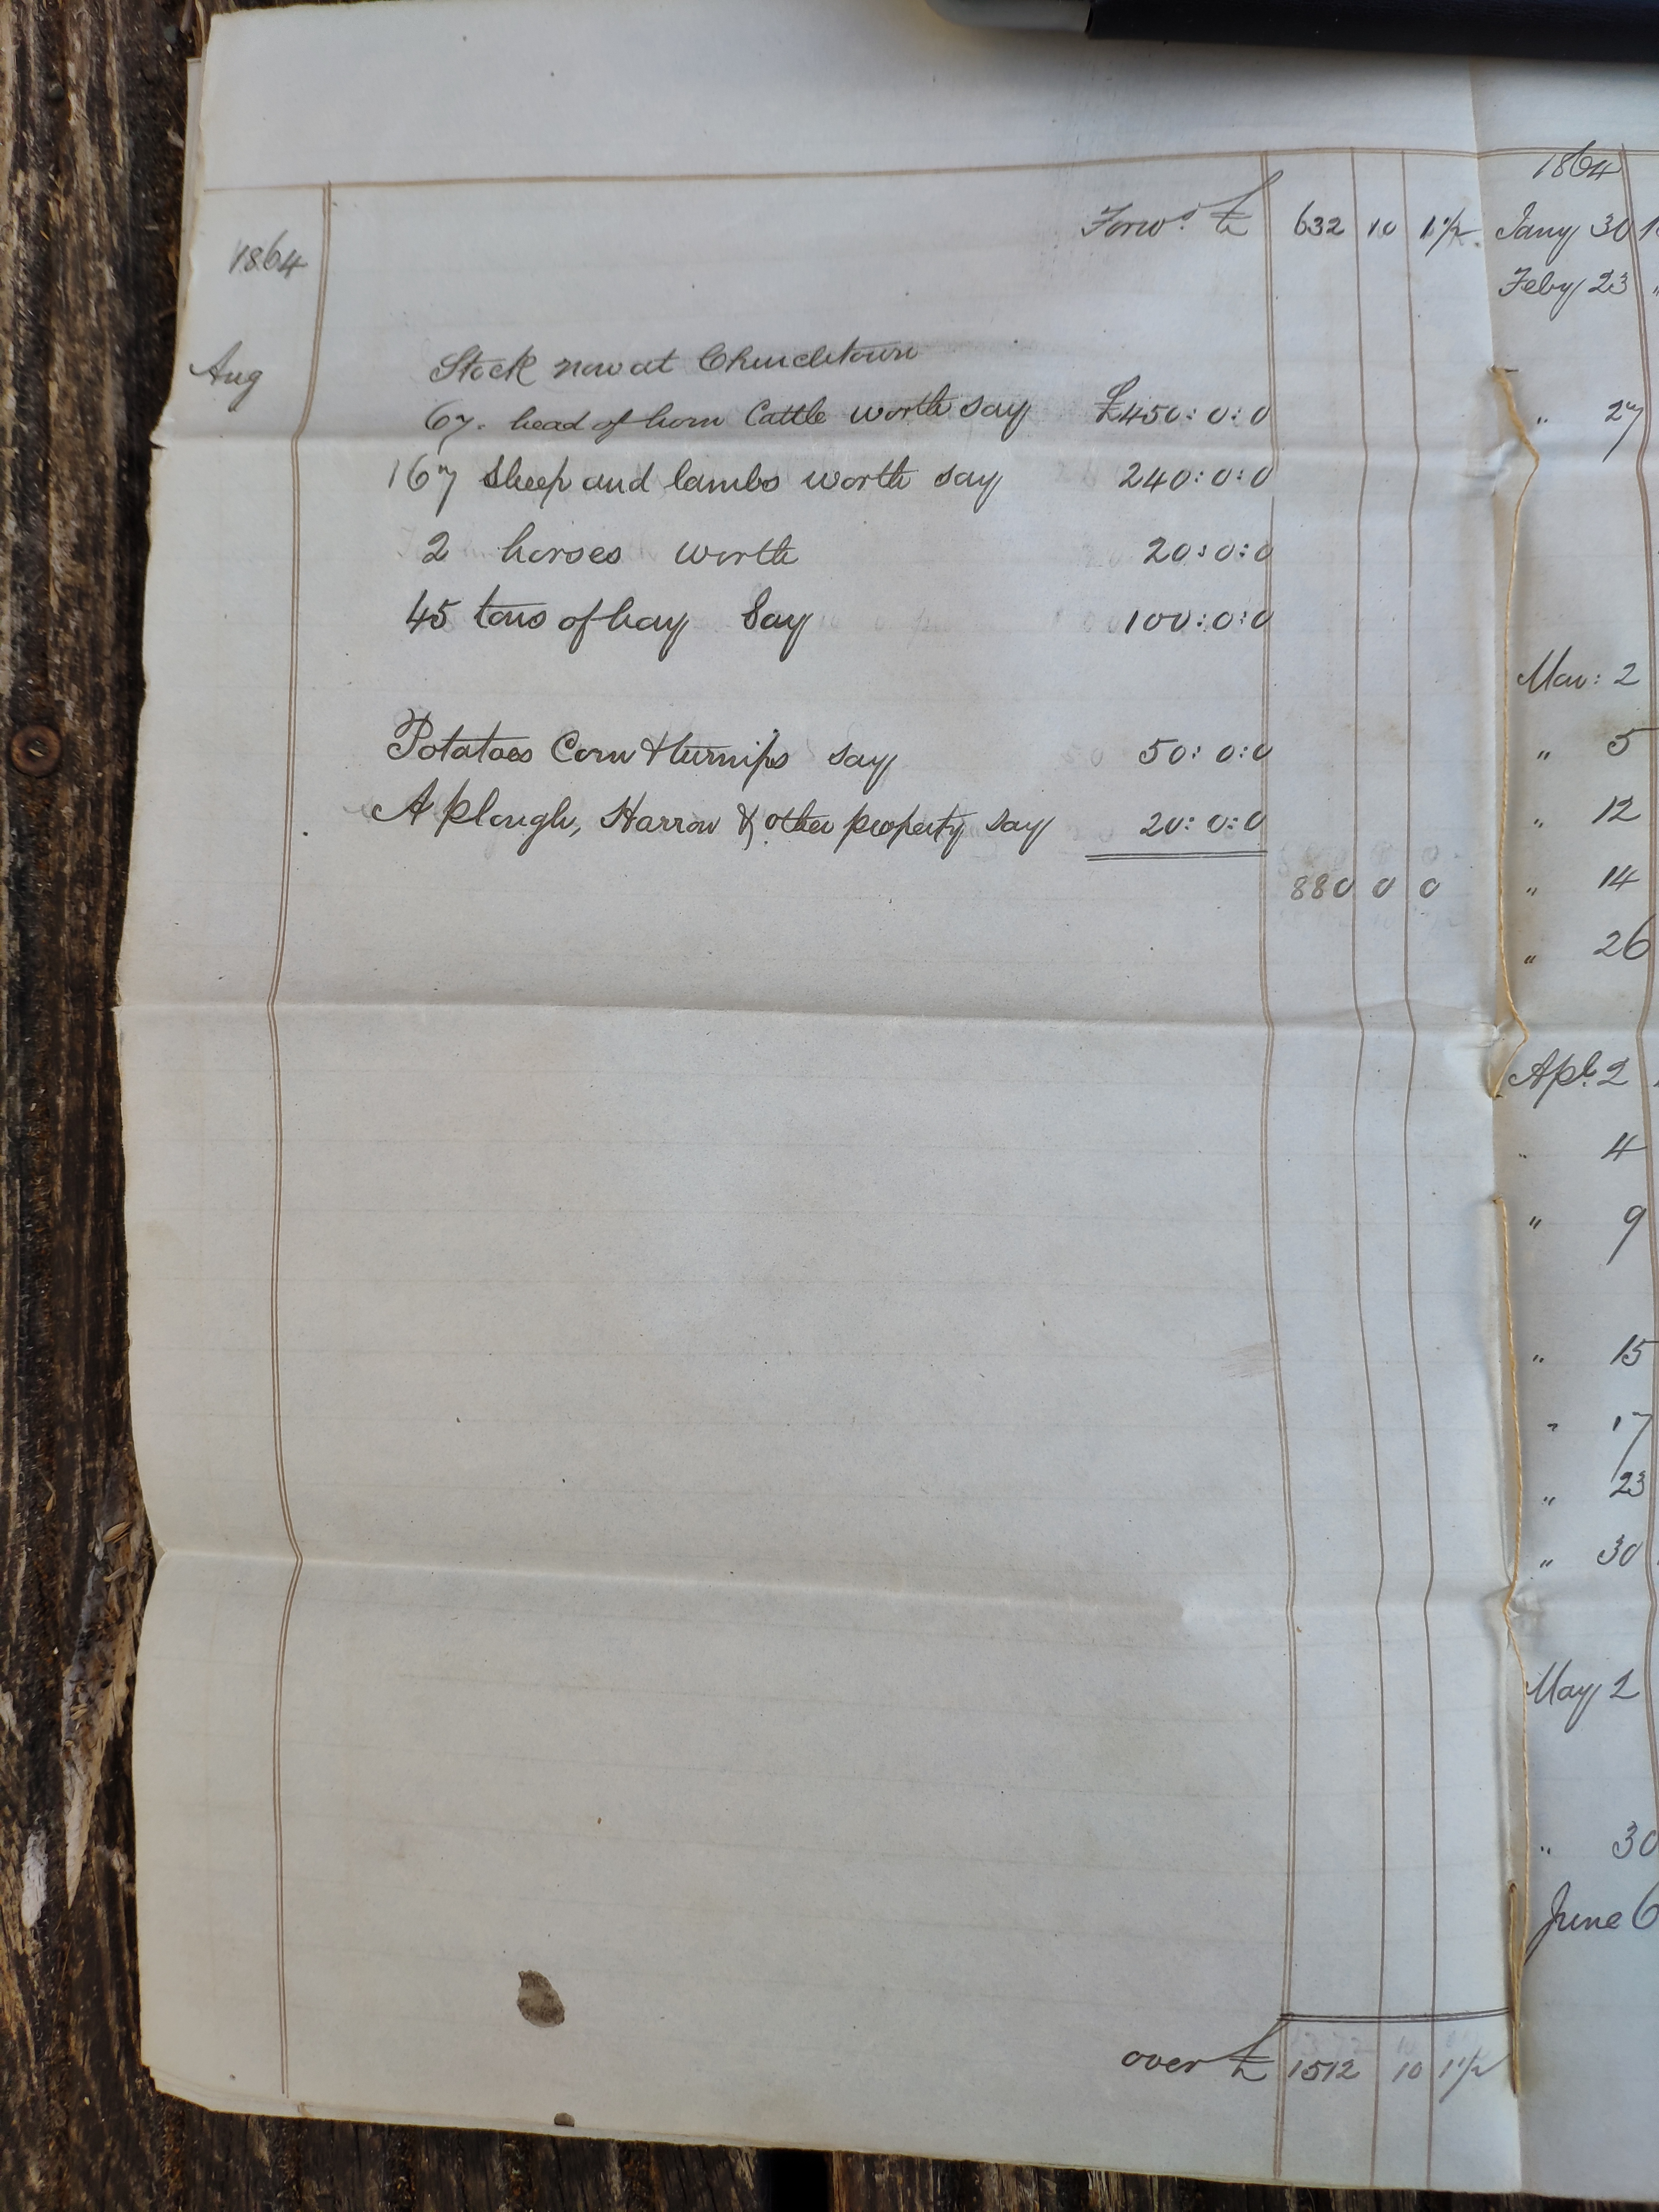 Forwd. £ 632 10 1 1/2
1864
Aug
Stock now at Churchtown
67. head of horn Cattle worth say £450:0:0
167 Sheep and lambs worth say 240:0:0
2 horses worth 20:0:0
45 tons of hay Say 100:0:0
Potatoes Corn & turnips say 50:0:0
A plough, Harrow & other property say 20:0:0
880 0 0
over £ 1512 10 1 1/2
1864
Jany 30
Feby 23
" 27
Mar: 2
" 5
" 12
" 14
" 26
Apl. 2
" 4
" 9
" 15
" 17
" 23
" 30
May 2
" 30
June 6